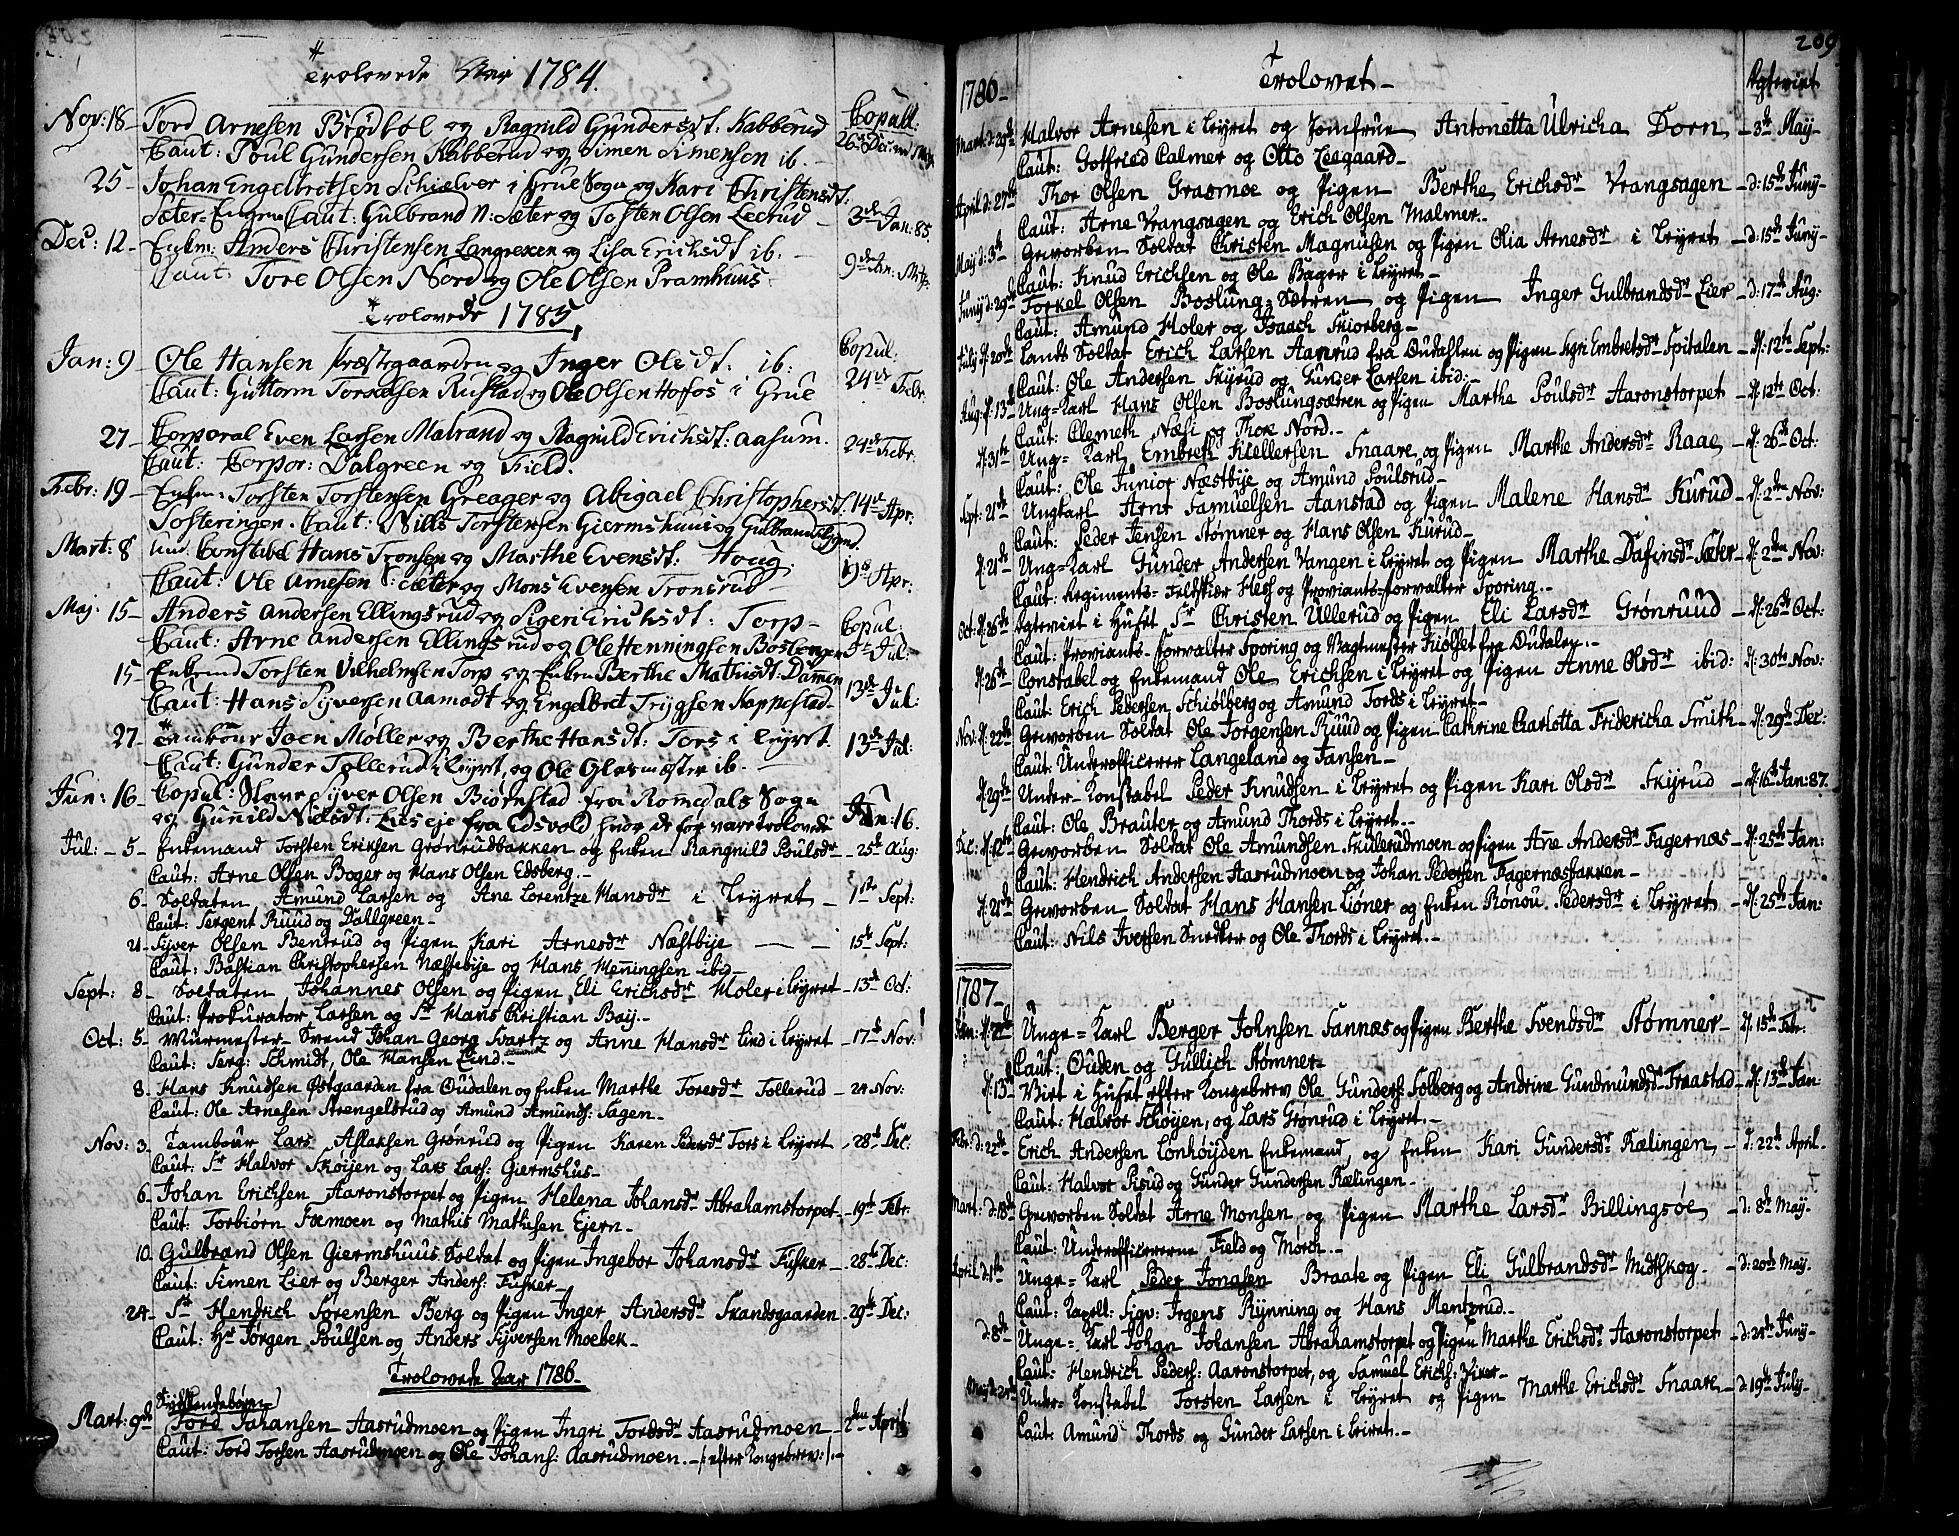 Trolovede Aar 1784.
Nov: 18 - Tord Arnesen Brødbøl og Ragnild Gundersdt. Kabberud Copull:
Caut: Poul Gundersen Kabberud og Simen Simensen ib. - 26de Dec
25 - Johan Engelbretsen Schiælver i Grue Sogn og Kari Christensdt:
Sæter-Engene Caut: Gulbrand N: Sæter og Tosten Olsen Leerud - 3de Jan: 85.
Dec: 12 - Enkm: Anders Christensen Langrexen og Lisa Ericksdt ib. -
Caut: Tore Olsen Nord og Ole Olsen Pramhuus - 9de Jan:
Trolovede 1785
Jan: 9 Ole Hansen Præstegaarden og Inger Olesdt: ib: Copul:
Caut: Guttorm Torkelsen Rustad og Ole Olsen Hofos i Grue 24de Febr.
27 - Corporal Even Larsen Malrand og Ragnild Erichsdt: Aasum. 24de Febr.
Caut: Corpor: Dalgreen og Field.
Febr: 19 - Enkm: Torsten Torstensen Greager og Abigael Christophersdt. 14de Apr:
Tosteringen. Caut: Nills Torstensen Giermshuus og Gulbrand
Mart: 8 Und. Constabel Hans Tronsen og Marthe Evensdt: Houg.
Caut: Ole Arnesen Sæter og Mons Evensen Tronsrud - 19de Apr:
Maj: 15 - Anders Andersen Ellingsrud og Sigeri Erichsdt: Torp - Copul:
Caut: Arne Andersen Ellingsrud og Ole Henningsen Boslengen 5te Jul:
15 - Enkemd Torsten Vilhelmsen Torp og Enken Berthe Mathisdt: Dammen
Caut: Hans Syversen Aamodt og Engelbret Trygsen Kappestad - 13de Jul:
27 - Tambour Joen Møller og Berthe Hansdt: Tors i Leyret. 13de Jul:
Caut: Gunder Tollerud i Leyret, og Ole Glasmester ib. -
Jun: 16 - Copul: Syver Olsen Biørnstad fra Romedals Sogn Jun: 16.
og Gunild Nielsdt: Lieseje fra Edsvold hvor de før vare trolovede
Jul: - 5 - Enkemand Torsten Eriksen Grønrudbakken og Enken Rangnild Poulsdr - 25de Aug:
Caut: Arne Olsen Boger og Hans Olsen Edsberg. -
6 - Soldaten Amund Larsen og Ane Lorentze Hansdr i Leyret - 1ste Sept:
Caut: Sergent Ruud og Dallgreen -
21 - Syver Olsen Bentrud og Pigen Kari Arnesdr Næstbije - 15de Sept:
Caut: Bastian Christophersen Næstebije og Hans Henningsen ibid -
Sept: 8 - Soldaten Johannes Olsen og Pigen Eli Erichsdr Moler i Leyret - 13de Oct:
Caut: Prokurator Larsen og Sr Hans Christian Baij. -
Oct: 5 - Muurmester-Svend Johan Georg Svartz og Anne Hansdr Lind i Leyret - 17de Nov:
Caut: Serg: Schmidt, Ole Hansen Lind: -
8 - Hans Knudsen Østgaarden fra Oudalen og Enken Marthe Toresdr Tollerud - 24 Nov:
Caut: Ole Arnesen Strengelsrud og Amund Amunds: Sagen -
Nov: 3 - Tambour Lars Aslaksen Grønrud og Pigen Karen Pedersdr Tors i Leyret - 28de Dec:
Caut: Sr Halvor Skøijen og Lars Lars: Giermshus -
6 - Johan Erichsen Aaronstorpet og Pigen Helena Johansdr Abrahamstorpet - 19de Febr:
Caut: Torbiørn Foxmoen og Mathis Mathisen Ejern -
10 - Gulbrand Olsen Giermshuus Soldat og Pigen Ingebor Johansdr Fusker - 28de Dec:
Caut: Simen Lier og Berger Anders: Fusker -
24 - Sr Hendrich Sørensen Berg og Pigen Inger Andersdr Skandsgaarden - 29de Dec:
Caut: Hr Jørgen Poulsen og Anders Syversen Moebek -
Trolovede Aar 1786 -
Sødskendebørn
Mart: 9de Tord Johansen Aasrudmoen og Pigen Ingri Tordsdr Aasrudmoen - 2den April
Caut: Tord Torsen Aasrudmoen og Ole Johans: Aasrudmoen. - /: efter Kongebrev: /. -
209
1786 - Trolovet - Egteviet
Mart: d: 29de Halvor Arnesen i Leyret og Jomfrue Antonetta Ulricha Dorn - 3de May -
Caut: Gotfried Palmer og Otto Leegaard -
April d: 27de Thor Olsen Grasmoe og Pigen Berthe Erichsdr Vrangsagen - d: 15de Juny -
Caut: Arne Vrangsagen og Erich Olsen Malmer. -
Maij d: 3de Geworben Soldat Christen Magnusen og Pigen Olia Arnesdr i Leyret - d: 15de Juny -
Caut: Knud Erichsen og Ole Bager i Leyret -
Junij d: 29de Torkel Olsen Boslung-Sætren og Pigen Inger Gulbrandsdr Lier - d: 17de Aug:
Caut: Amund Moler og Isaach Skiorberg -
July d: 20de Lands Soldat Erich Larsen Aanrud fra Oudalen og Pigen Sign Embretsdr Spitalen - d: 12te Sept:
Caut: Ole Andersen Skyrud og Gunder Larsen ibid: -
Aug: d: 13de Ung-Karl Hans Olsen Boslungsætren og Pigen Marthe Poulsdr Aaronstorpet - d: 12te Oct:
Caut: Clemeth Næsi og Thore Nord. -
d: 31te Ung-Karl Embreth Kiellersen Snaare og Pigen Marthe Andersdr Raae - d: 26de Oct:
Caut: Ole Junior Næstbije og Amund Poulsrud -
Sept: 21de Ungkarl Arne Samuelsen Aanstad og Pigen Malene Hansdr Kurud - d: 2den Nov:
Caut: Peder Jensen Stømner og Hans Olsen Kurud -
d: 21de Ung-Karl Gunder Andersen Vangen i Leyret og Pigen Marthe Dafinsdr Sæter - d: 2den Nov:
Caut: Regiments-Feldskiær Hess og Proviants-forvalter Sporing. -
Oct: d: 26de Egteviet i Huset Sr Christen Ullerud og Pigen Eli Larsdr Grønruud - d: 26de Oct:
Caut: Proviants-Forvalter Sporing og Vagtmester Kiølset fra Oudalen. -
d: 26de Constabel og Enkemand Ole Erichsen i Leyret og Pigen Anne Olsdr ibid: d: 30te Nov:
Caut: Erich Pedersen Schiølberg og Amund Tords i Leyret -
Nov: d: 22de Geworben Soldat Ole Jorgensen Ruud og Pigen Cathrine Charlotta Fridericha Smith - d: 29de Dec:
Caut: Underofficerer Langeland og Jansen -
d: 29de Under-Konstabel Peder Knudsen i Leyret og Pigen Kari Olsdr Skyrud - d: 16de Jan: 87.
Caut: Ole Brauter og Amund Thords i Leyret. -
Dec: d: 12te Geworben Soldat Ole Amundsen Skulerudmoen og Pigen Ane Andersdr Fagernæs - d: 25de Jan:
Caut: Hendrich Andersen Aasrudmoen og Johan Pedersen Fagernæsbakken -
d: 21de Geworben Soldat Hans Hansen Liøner og Enken Rønou Pedersdr i Leyret - d: 25de Jan:
Caut: Nils Iversen Snedker og Ole Thords i Leyret. -
1787 -
Jan: d: 22de Unge-Karl Berger Johnsen Sannæs og Pigen Berthe Svendsdr Stømner - d: 15de Febr:
Caut: Ouden og Gullich Stømner -
d: 13de Viet i Huset efter Kongebrev Ole Gunders: Solberg og Andrine Gundmundsdr Fraastad - d: 13de Jan:
Caut: Halvor Schøijen, og Lars Grønrud i Leyret. -
Febr: d: 22de Erich Andersen Lonhøijden Enkemand, og Enken Kari Gundersdr Kælingen, - d: 22de April -
Caut: Halvor Sisud og Gunder Gundersen Kælingen -
Mart: d: 18de Geworben Soldat Arne Monsen og Pigen Marthe Larsdr Billingsøe - d: 8de May -
Caut: Underofficererne Field og Mørch. -
April d: 1ste Unge-Karl Peder Jonasen Braate og Pigen Eli Gulbrandsdr Midtskog - d: 20de May -
Caut: Kapelt: Sigv: Irgens Rynning og Hans Mentzrud. -
d: 8de Unge-Karl Johan Johansen Abrahamstorpet og Pigen Marthe Erichsdr Aaronstorpet - d: 24de Juny -
Caut: Hendrich Peders: Aaronstorpet, og Samuel Erichs: Viker -
May d: 20de Under-Konstabel Torsten Larsen i Leyret og Pigen Marthe Erichsdr Snaare - d: 19de July -
Caut: Amund Thords og Gunder Larsen i Leiret. -